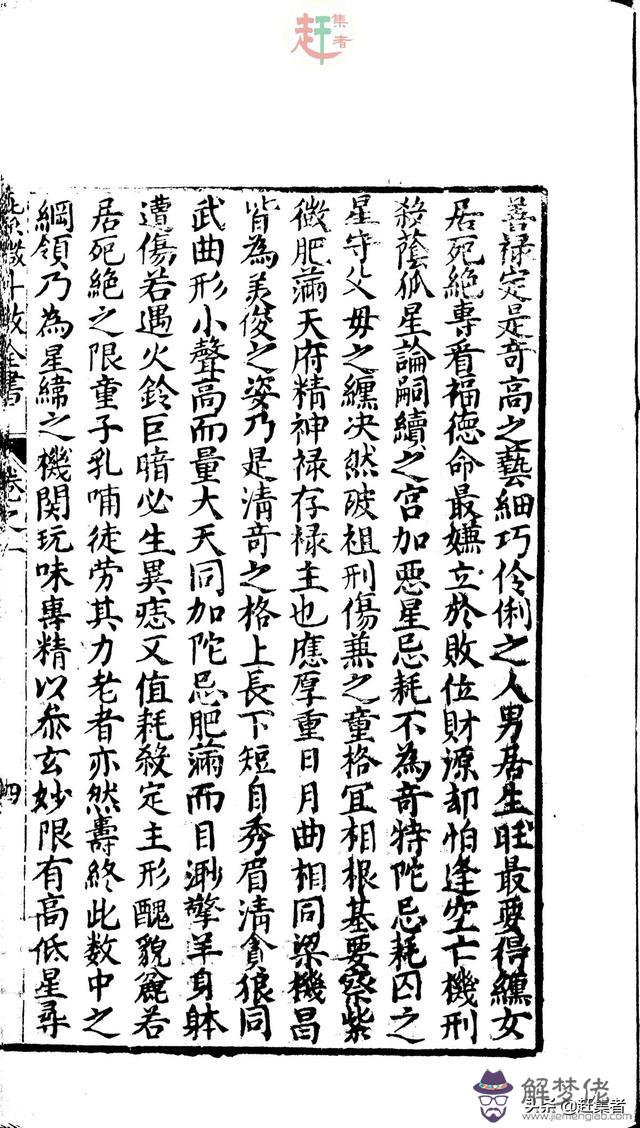 赶集者
善祿定是奇高之藝細巧伶俐之人男居生旺最要得纏女
居死絕專看福德命最嫌立於敗位財源却怕逢空亡機刑
殺蔭孤星論嗣續之宮加惡星忌耗不為奇特陀忌耗囚之
星守父母之纏决然破祖刑傷兼之童格宜相根基要察紫
微肥滿天府精神祿存祿主也應厚重日月曲相同梁機昌
皆為美俊之姿乃是清奇之格上長下短自秀眉清貪狼同
武曲形小聲高而量大天同加陀忌肥滿而目渺擎羊身躰
遭傷若遇火鈴巨暗必生異痣又值耗殺定主形醜貌麄若
居死絕之限童子乳哺徒劳其力老者亦然壽終此数中之
綱領乃為星緯之機関玩味專精以叅玄妙限有高低星尋
紫微斗数全書 卷之一 四
解梦佬
www.jiemenglao.com
头条@赶集者